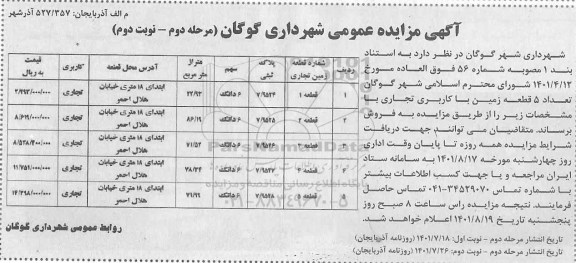 م الف آذربایجان: ۵۲۷/۳۵۷ آذرشهر
آگهی مزایده عمومی شهرداری گوگان (مرحله دوم – نوبت دوم)
شهرداری شهر گوگان در نظر دارد به استناد
بند ۱ مصوبه شماره ۵۶ فوق العاده مورخ
۱۴۰۱/۴/۱۲ شورای محترم اسلامی شهر گوگان
تعداد ۵ قطعه زمین با کاربری تجاری با
مشخصات زیر را از طریق مزایده به فروش
برساند. متقاضیان می توانند جهت دریافت
شرایط مزایده همه روزه تا پایان وقت اداری
روز چهارشنبه مورخه ۱۴۰۱/۸/۱۷ به سامانه ستاد
ایران مراجعه و یا جهت کسب اطلاعات بیشتر
با شماره تماس ۳۴۵۲۹۰۷۰-۰۴۱ تماس حاصل
فرمایند. نتیجه مزایده راس ساعت ۸ صبح روز
پنجشنبه تاریخ ۱۴۰۱/۸/۱۹ اعلام خواهد شد.
ردیف شماره قطعه زمین تجاری پلاک ثبتی سهم متراژ متر مربع آدرس محل قطعه کاربری قیمت به ریال
۱ قطعه ۱ ۷/۹۵۲۴ ۶ دانگ ۲۲/۹۳ ابتدای ۱۸ متری خیابان هلال احمر تجاری
۲ قطعه ۲ ۷/۹۵۲۵ ۶ دانگ ۸۶/۱۹ ابتدای ۱۸ متری خیابان هلال احمر تجاری ۸/۶۱۹/۰۰۰/۰۰۰
۳ ۶ دانگ ۷۱/۵۲ ابتدای ۱۸ متری خیابان هلال احمر تجاری
۴ ۶ دانگ ۷۸/۳۴ ابتدای ۱۸ متری خیابان هلال احمر تجاری ۱۱/۷۵۱/۰۰۰/۰۰۰
۵ قطعه ۵ ۷/۹۵۲۸ ۶ دانگ ابتدای ۱۸ متری خیابان هلال احمر تجاری
تاریخ انتشار مرحله دوم – نوبت اول: ۱۴۰۱/۷/۱۸ (روزنامه آذربایجان)
تاریخ انتشار مرحله دوم – نوبت دوم: ۱۴۰۱/۷/۲۶ (روزنامه آذربایجان)
روابط عمومی شهرداری گوگان